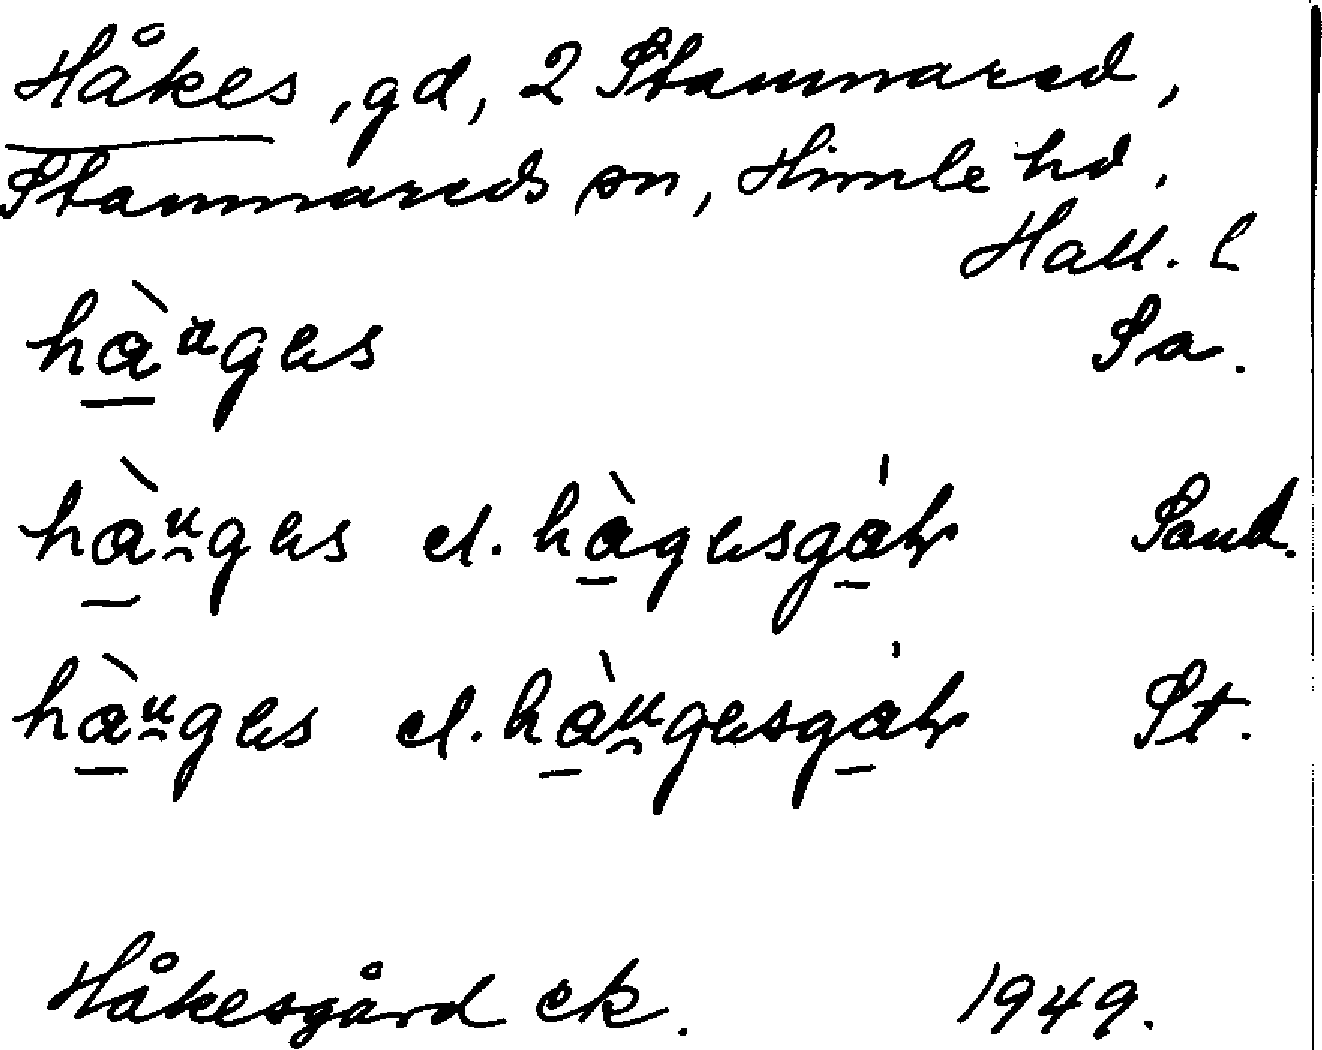 Håkes, gd, 2 Stamnared,
Stamnareds sn, Himle hd.
Hall. l
hàᵘges Sa.
hàᵘges el. hàgesgår Sand.
hàᵘges el. hàᵘgesgår St.
Håkesgård ek. 1949.